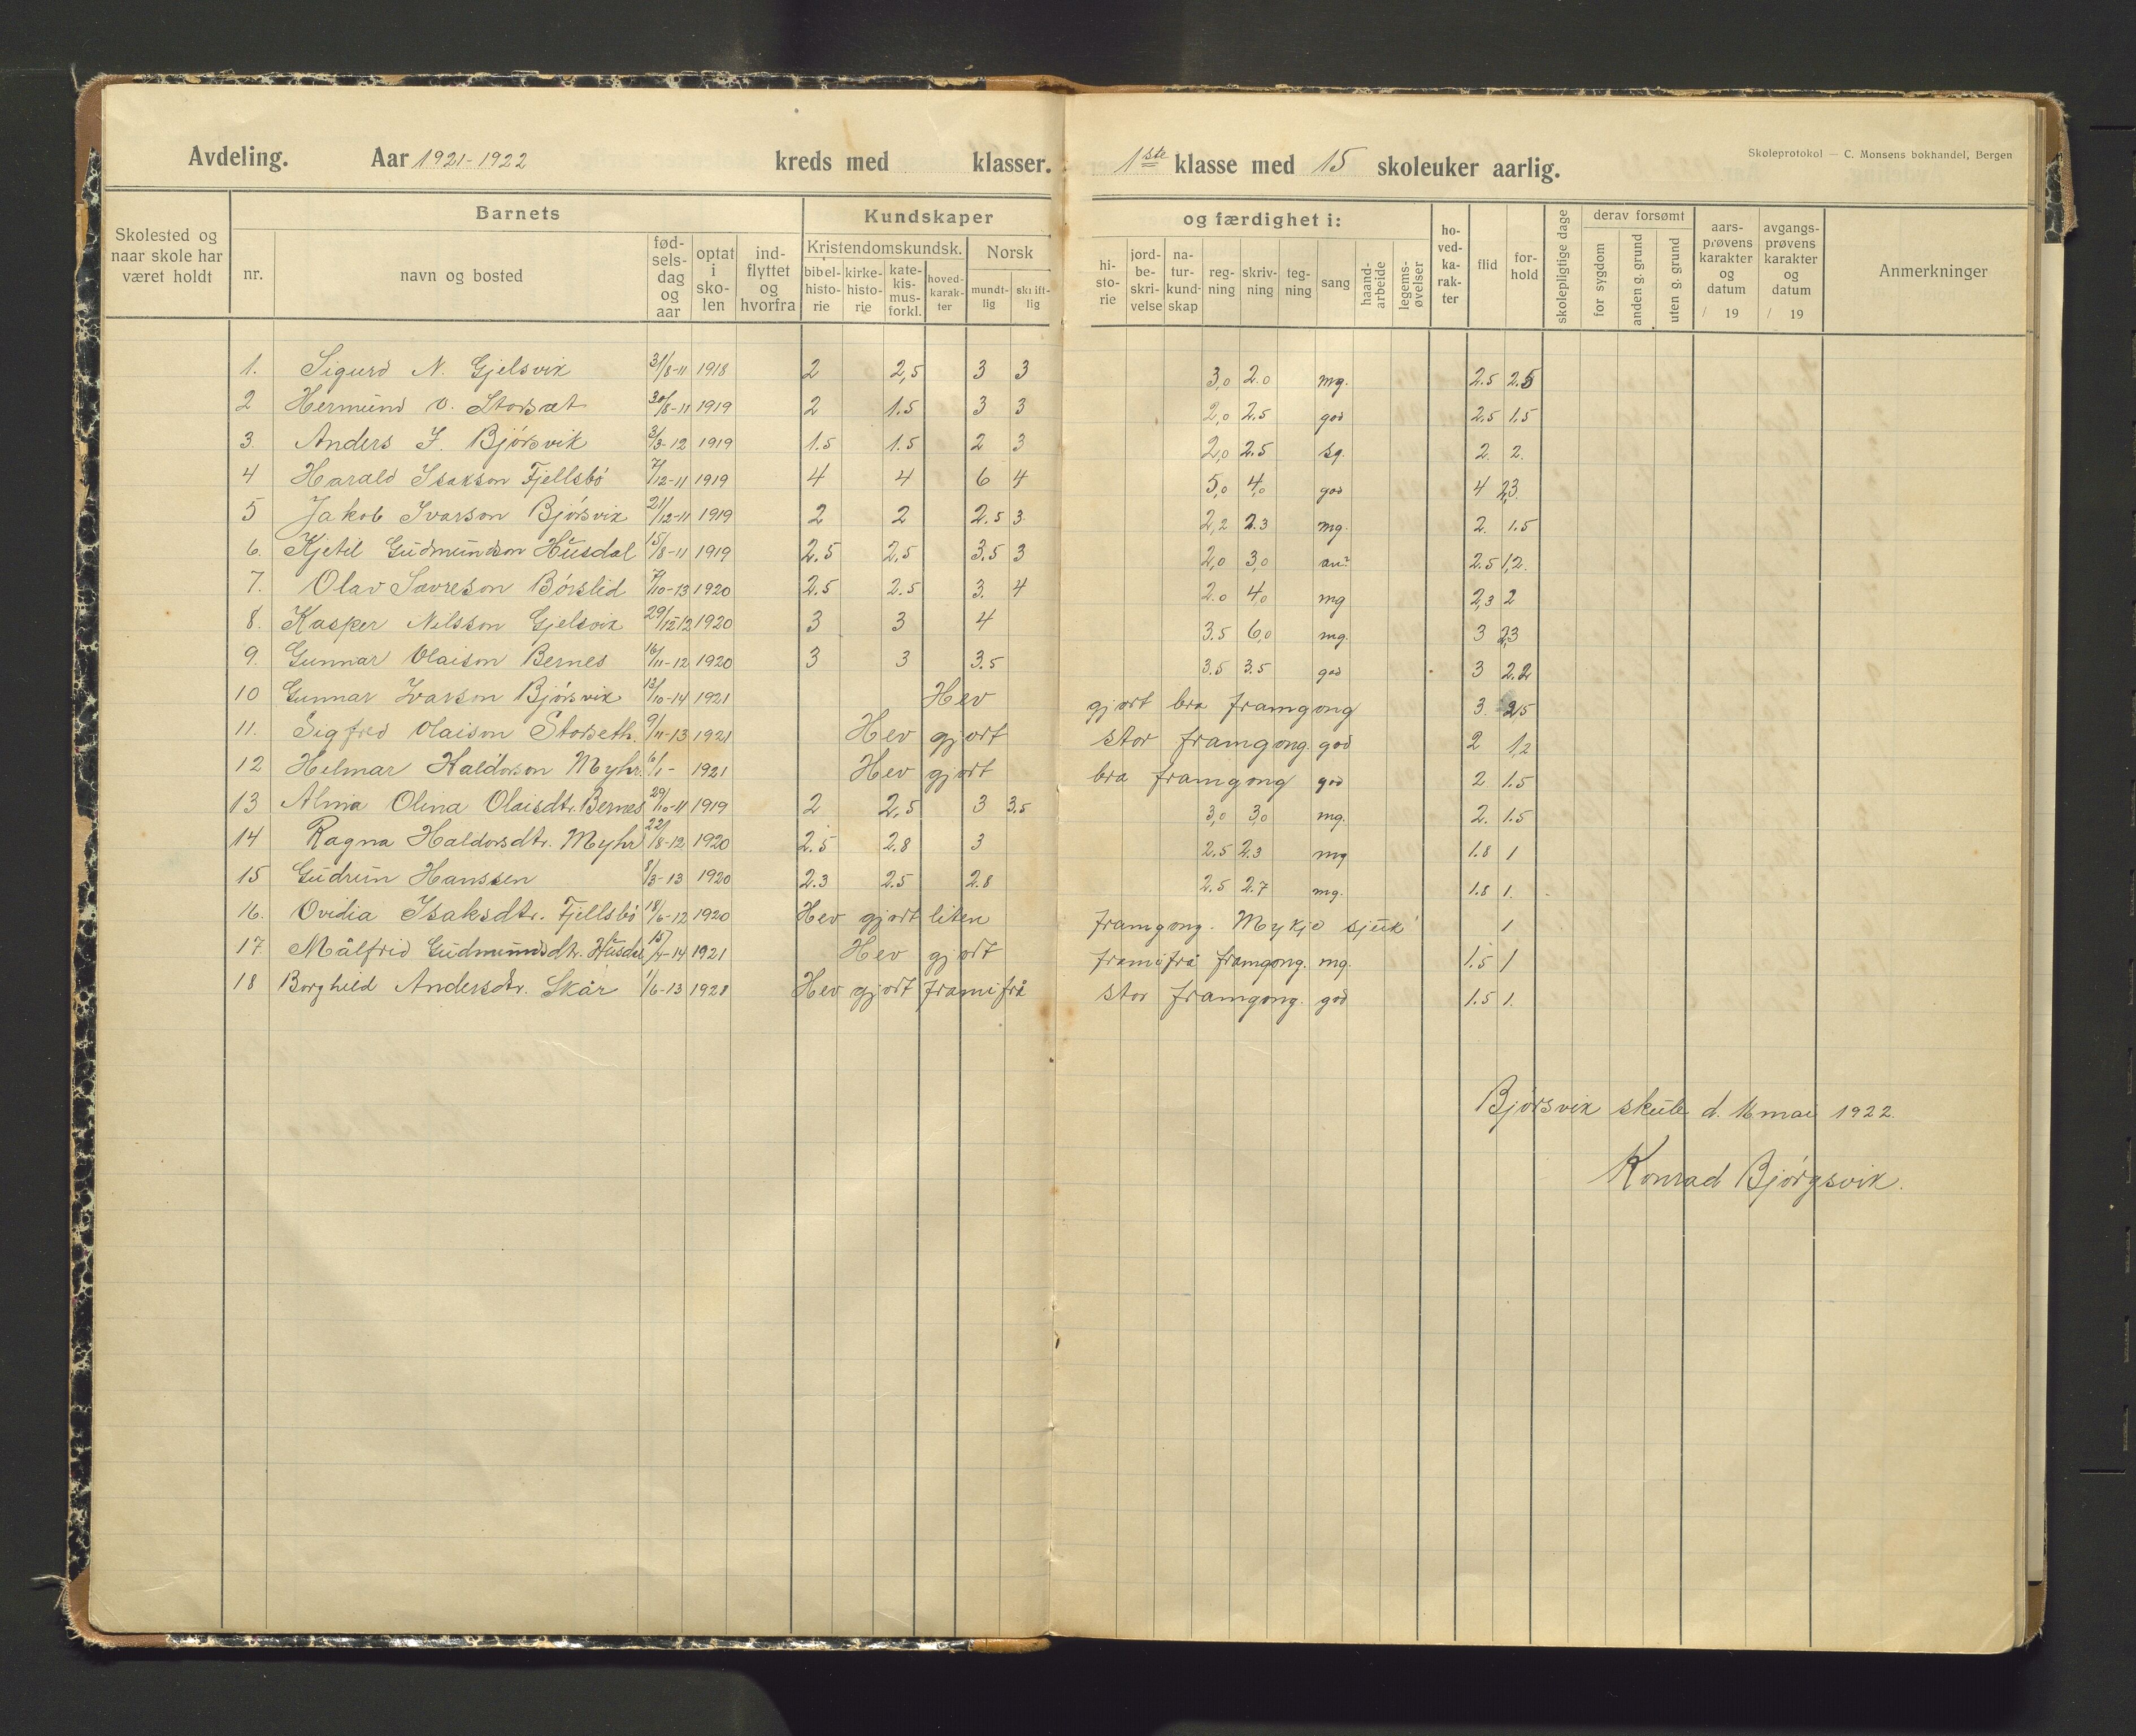 Avdeling. Aar 1921-1922 kreds med klasser. 1ste klasse med 15 skoleuker aarlig. Skoleprotokol — C. Monsens bokhandel, Bergen
Skolested og naar skole har været holdt
Barnets
nr. navn og bosted fødselsdag og aar optat i skolen indflyttet og hvorfra
Kundskaper og færdighet i:
Kristendomskundsk. Norsk
bibelhistorie kirkehistorie katekismusforkl. hovedkarakter mundtlig skriftlig
historie jordbeskrivelse naturkundskap regning skrivning tegning sang haandarbeide legemsøvelser hovedkarakter flid forhold skolepligtige dage
derav forsømt
for sygdom anden g. grund uten g. grund
aarsprøvens karakter og datum / 19 avgangsprøvens karakter og datum / 19 Anmerkninger
1. Sigurd N. Gjelsvik 31/8-11 1918 2 2,5 3 3 3,0 2.0 mg. 2.5 2.5
2 Hermund O. Storsæt 30/8-11 1919 2 1.5 3 3 2,0 2.5 god 2.5 1.5
3. Anders J. Bjørsvik 3/3-12 1919 1.5 1.5 2 3 2,0 2.5 sg. 2. 2.
4 Harald Isakson Fjellsbø 7/12-11 1919 4 4 6 4 5,0 4,0 god 4 2,3
5 Jakob Ivarson Bjørsvik 21/12-11 1919 2 2 2.5 3. 2,2 2.3 mg. 2. 1.5
6. Kjetil Gudmundson Husdal 15/8-11 1919 2.5 2,5 3.5 3 2,0 3,0 2.5 1,2.
7. Olav Savreson Børslid 7/10-13 1920 2.5 2.5 3. 4 2.0 4,0 mg 2,3 2
8. Kasper Nilsson Gjelsvik 29/12-12 1920 3 3 4 3.5 6,0 mg. 3 2,3
9. Gunnar Olaison Bernes 16/11-12 1920 3 3 3.5 3.5 3.5 god 3 2.2
10 Gunnar Ivarson Bjørsvik 13/10-14 1921 Hev gjort bra framgong 3. 2,5
11. Sigfred Olaison Storseth. 9/11-13 1921 Hev gjort stor framgong. god 2 1,2
12 Helmar Haldorson Myhr. 6/1- 1921 Hev gjort bra framgong god 2 1.5
13 Alma Olina Olaisdtr. Bernes 29/10-11 1919 2 2,5 3 3.5 3,0 3,0 mg. 2. 1.5
14 Ragna Haldorsdtr. Myhr 22/8-12 1920 2.5 2.8 3 2.5 2.3 mg 1.8 1
15 Gudrun Hanssen 8/3-13 1920 2.3 2.5 2.8 2.5 2.7 mg. 1.8 1.
16. Ovidia Isaksdtr. Fjellsbø 18/6-12 1920 Hev gjort liten framgong. Mykje sjuk 1
17. Målfrid Gudmundsdtr. Husdal 15/4-14 1921 Hev gjort framifrå framgong. mg. 1.5 1
18 Borghild Andersdtr. Skår 1/6-13 1921 Hev gjort framifrå stor framgong. god 1.5 1.
Bjørsvik skule d. 16 mai 1922.
Konrad Bjørgsvik.